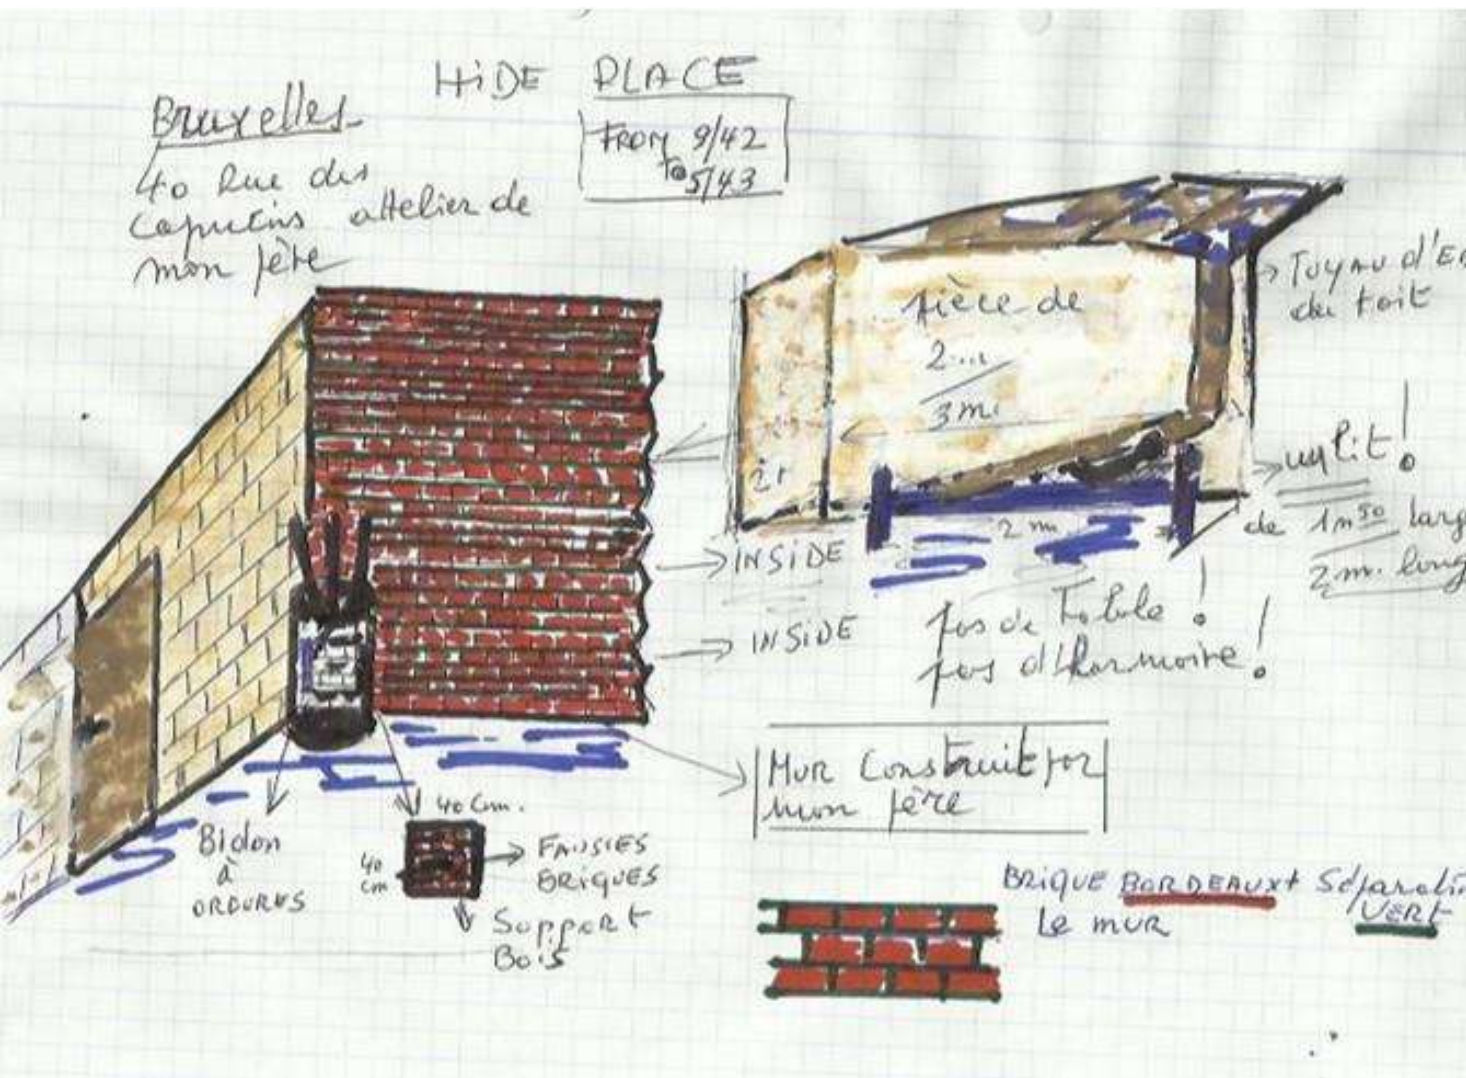 HiDE PLACE
FROM 9/42
To 5/43
Bruxelles
40 Rue des
Capucins attelier de
mon père
Tuyau d'E
du toit
pièce de
2...
3 m.
un lit!
de 1m50 larg
2 m. long
2 m
INSIDE
INSIDE
pas de Table!
pas d'harmoire!
Mur Construit par
mon père
Bidon
à
ORDURES
40 Cm.
40
cm
FAUSSES
BRIQUES
Support
Bois
BRIQUE BORDEAUX + Séparati
Le MUR
VERT